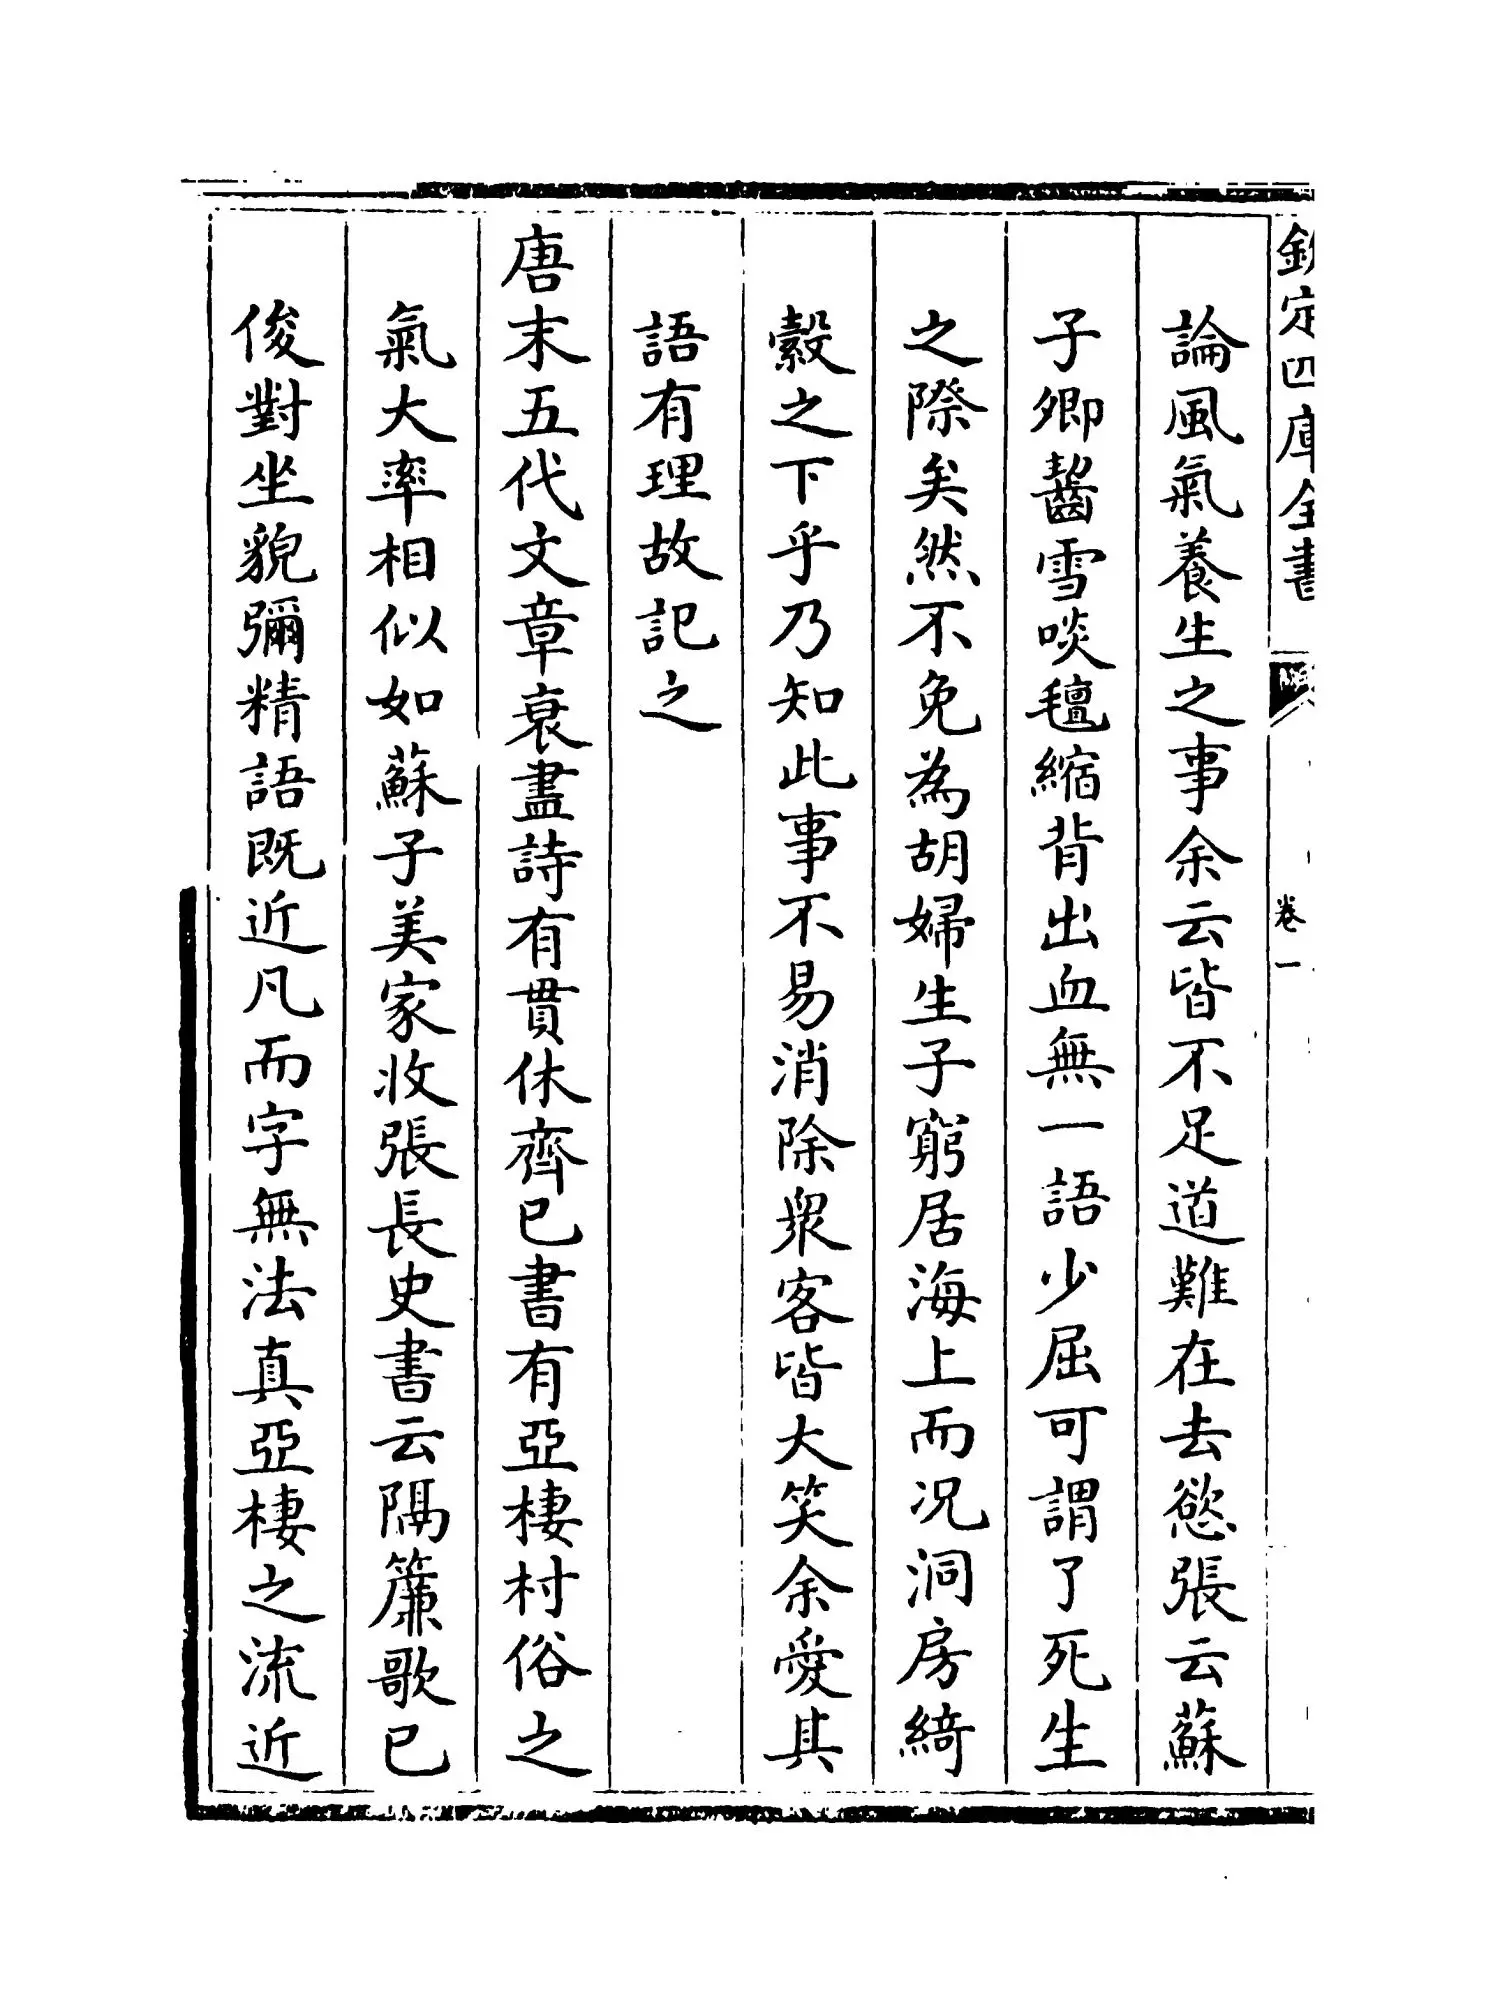 欽定四庫全書
卷一
論風氣養生之事余云皆不足道難在去慾張云蘇
子卿齧雪啖氊縮背出血無一語少屈可謂了死生
之際矣然不免為胡婦生子窮居海上而况洞房綺
縠之下乎乃知此事不易消除衆客皆大笑余愛其
語有理故記之
唐末五代文章衰盡詩有貫休齊已書有亞棲村俗之
氣大率相似如蘇子美家收張長史書云隔簾歌已
俊對坐貌彌精語既近凡而字無法真亞棲之流近